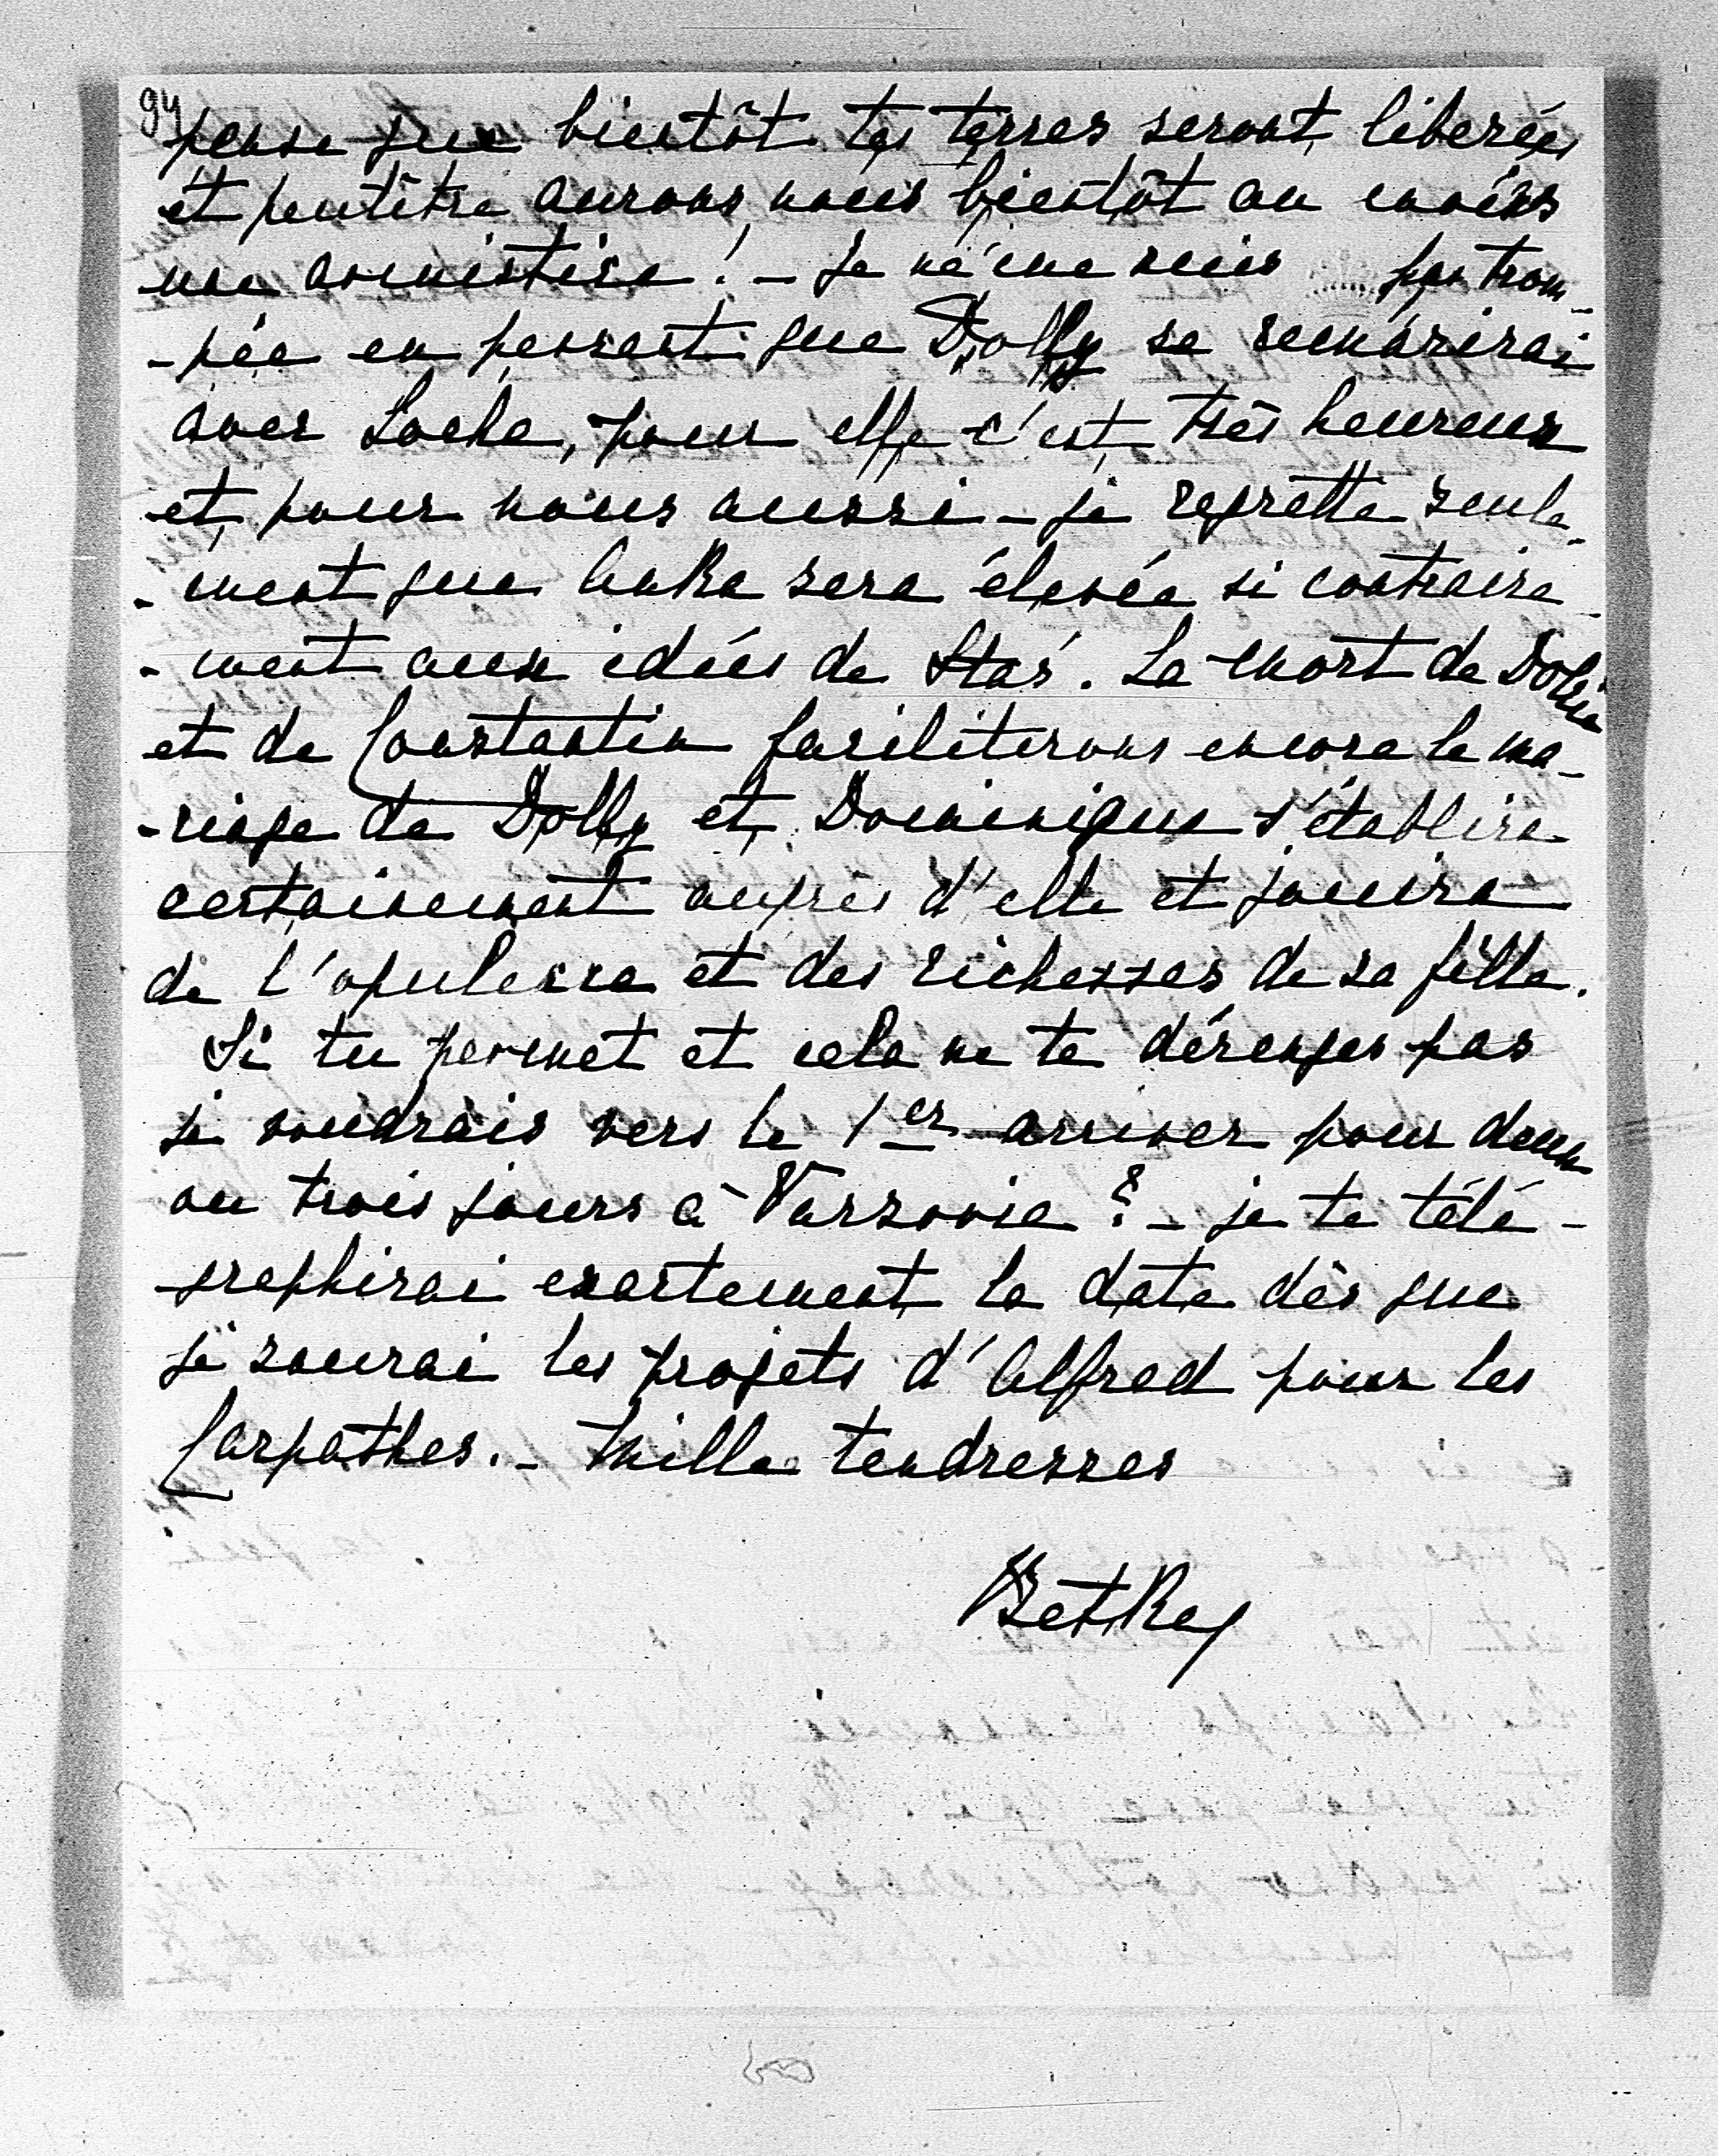 94
pense que bientôt tes terres seront liberées
et peutêtre aurons nous bientôt au moins
une armistice! - Je ne me suis pas trom-
-pée en pensant que Dolly se remarirai
avec Locke, pour elle c'est très heureux
et pour nous aussi - je regrette seule-
-ment que AnKa sera élevée si contraire-
-ment aux idées de Staś. La mort de
et de Constantin faciliterons encore le ma-
-riage de Dolly et Dominique s'établira
certainement auprès d'elle et jouira
de l'opulence et des richesses de sa fille.
Si tu permet et cela ne te déranges pas
je voudrais vers le 1er arriver pour deux
ou trois jours à Varsovie? - je te télé-
-graphirai exactement la date dès que
je saurai les projets d'Alfred pour les
Carpathes. - Mille tendresses
BetKa